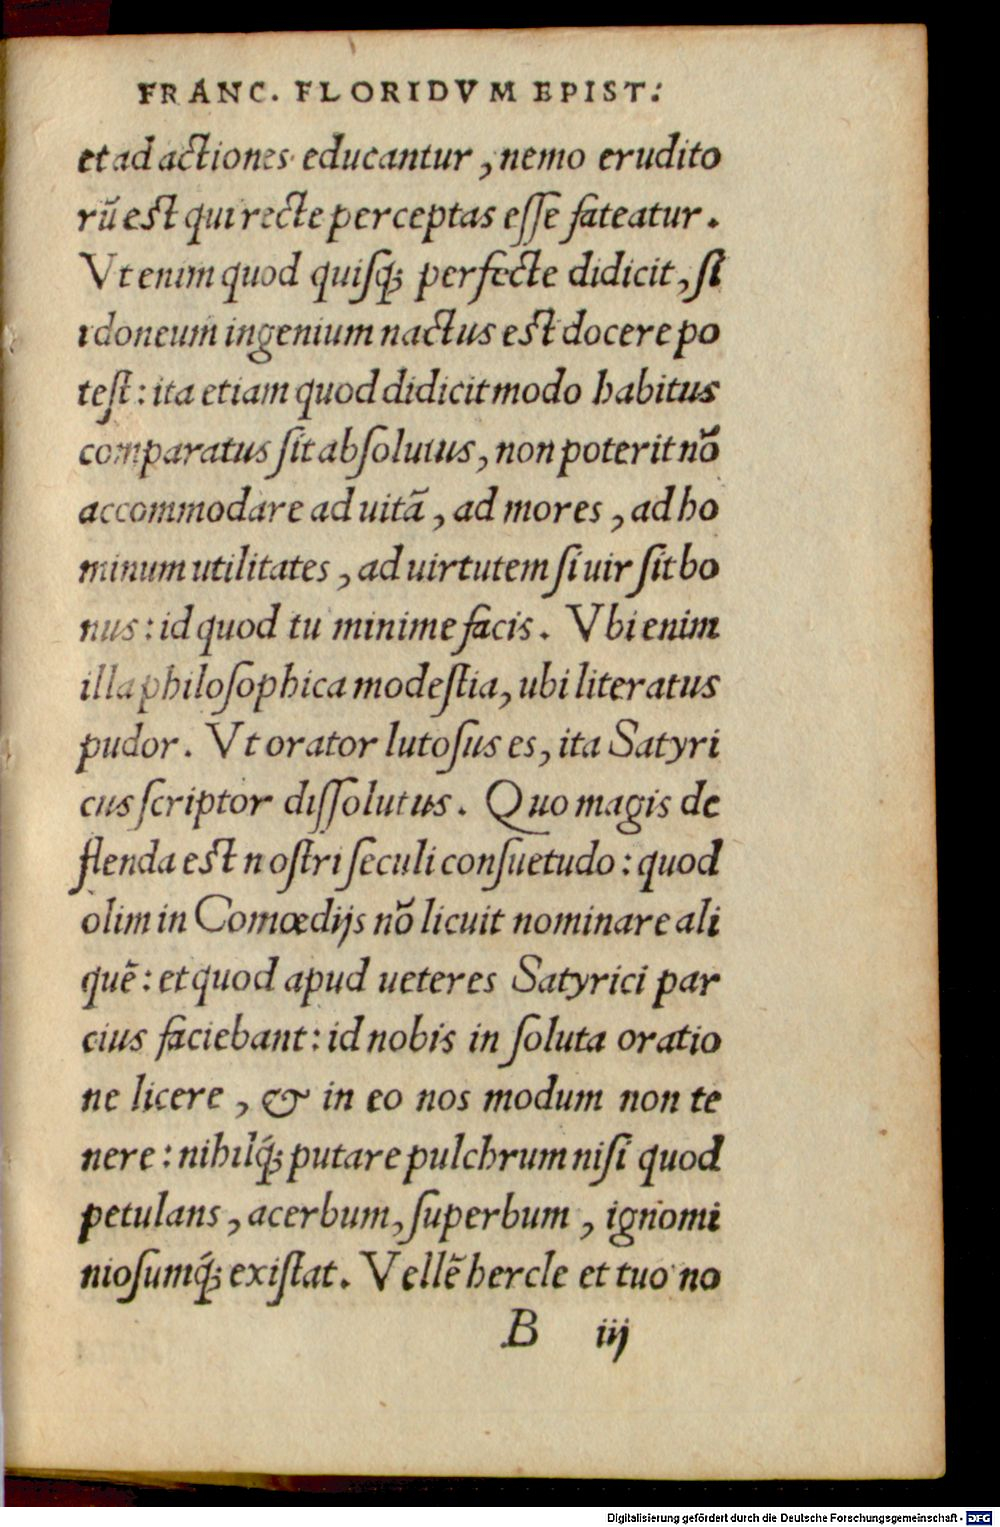 FRANC. FLORIDVM EPIST.
et ad actiones educantur, nemo erudito
rū est qui recte perceptas esse fateatur.
Vt enim quod quisq; perfecte didicit, si
idoneum ingenium nactus est docere po
test: ita etiam quod didicit modo habitus
comparatus sit absolutus, non poterit nō
accommodare ad uitā, ad mores, ad ho
minum utilitates, ad uirtutem si uir sit bo
nus: id quod tu minime facis. Vbi enim
illa philosophica modestia, ubi literatus
pudor. Vt orator lutosus es, ita Satyri
cus scriptor dissolutus. Quo magis de
flenda est nostri seculi consuetudo: quod
olim in Comœdijs nō licuit nominare ali
quē: et quod apud ueteres Satyrici par
cius faciebant: id nobis in soluta oratio
ne licere, & in eo nos modum non te
nere: nihilq́; putare pulchrum nisi quod
petulans, acerbum, superbum, ignomi
niosumq́; existat. Vellē hercle et tuo no
B iij
Digitalisierung gefördert durch die Deutsche Forschungsgemeinschaft - DFG